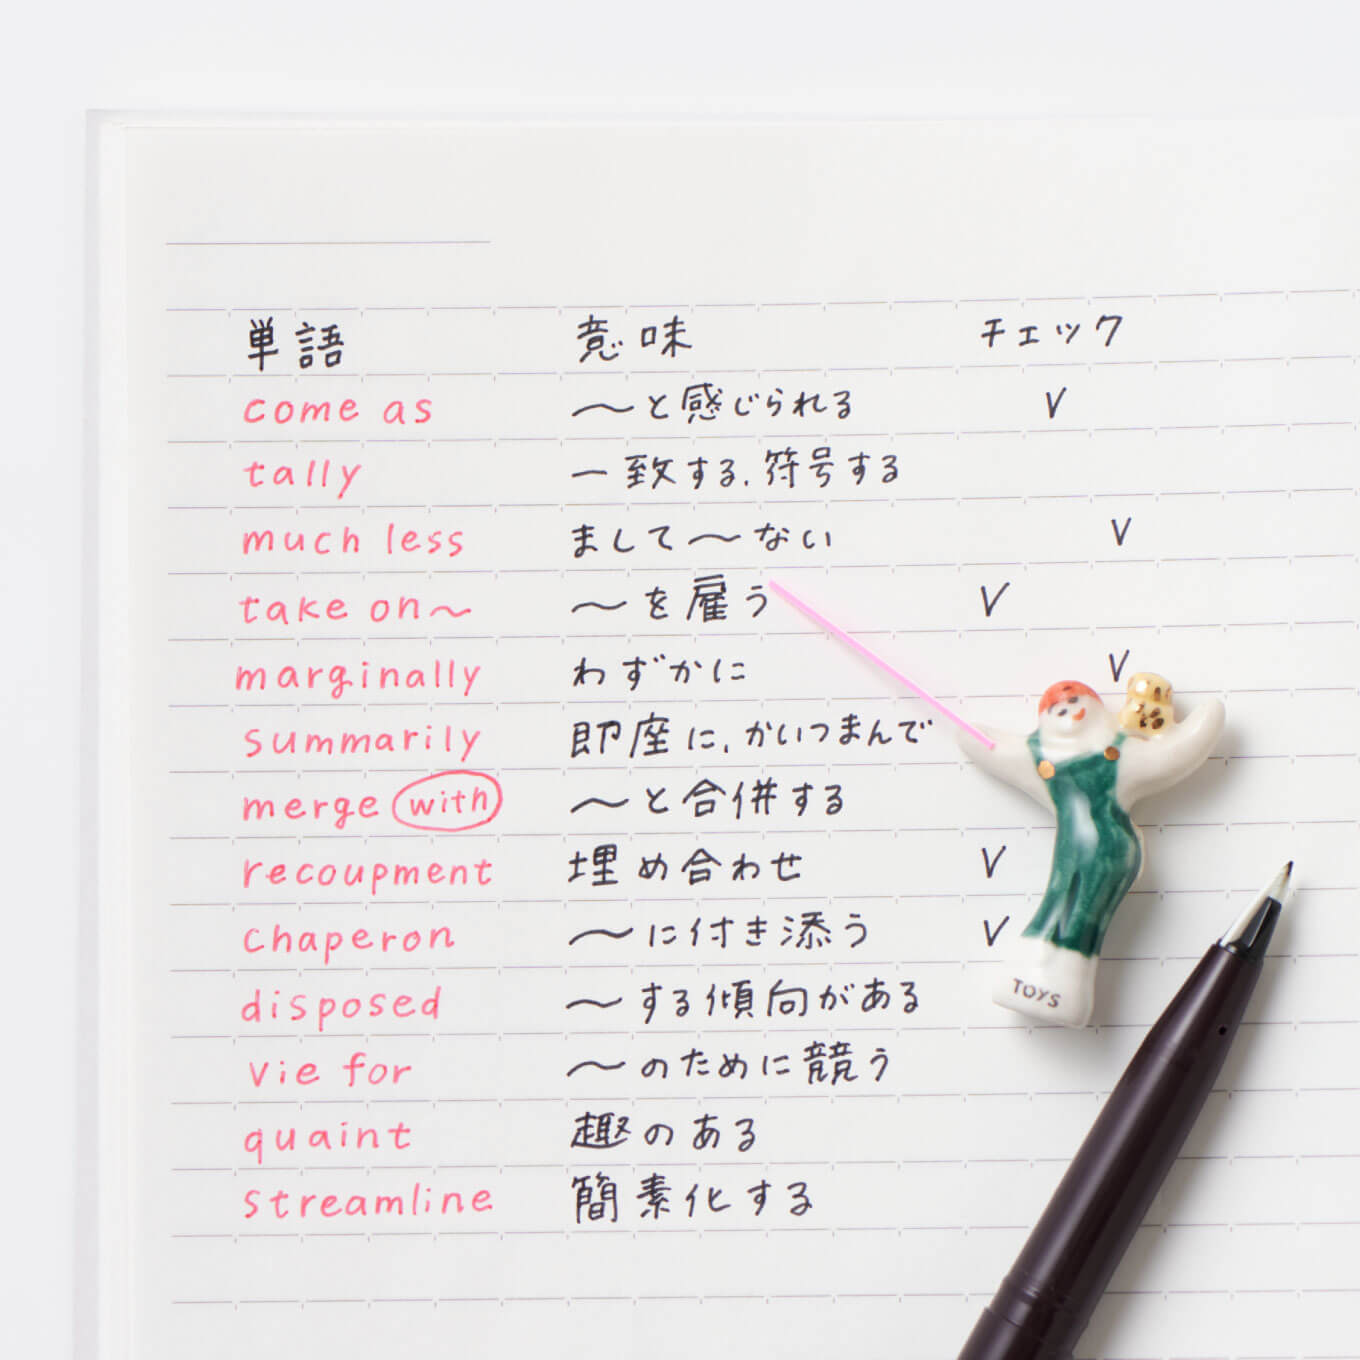 単語 意味 チェック
come as 〜と感じられる ✓
tally 一致する、符号する
much less まして〜ない ✓
take on〜 〜を雇う ✓
marginally わずかに ✓
summarily 即座に、かいつまんで
merge with 〜と合併する
recoupment 埋め合わせ ✓
chaperon 〜に付き添う ✓
disposed 〜する傾向がある
vie for 〜のために競う
quaint 趣のある
streamline 簡素化する
TOYS